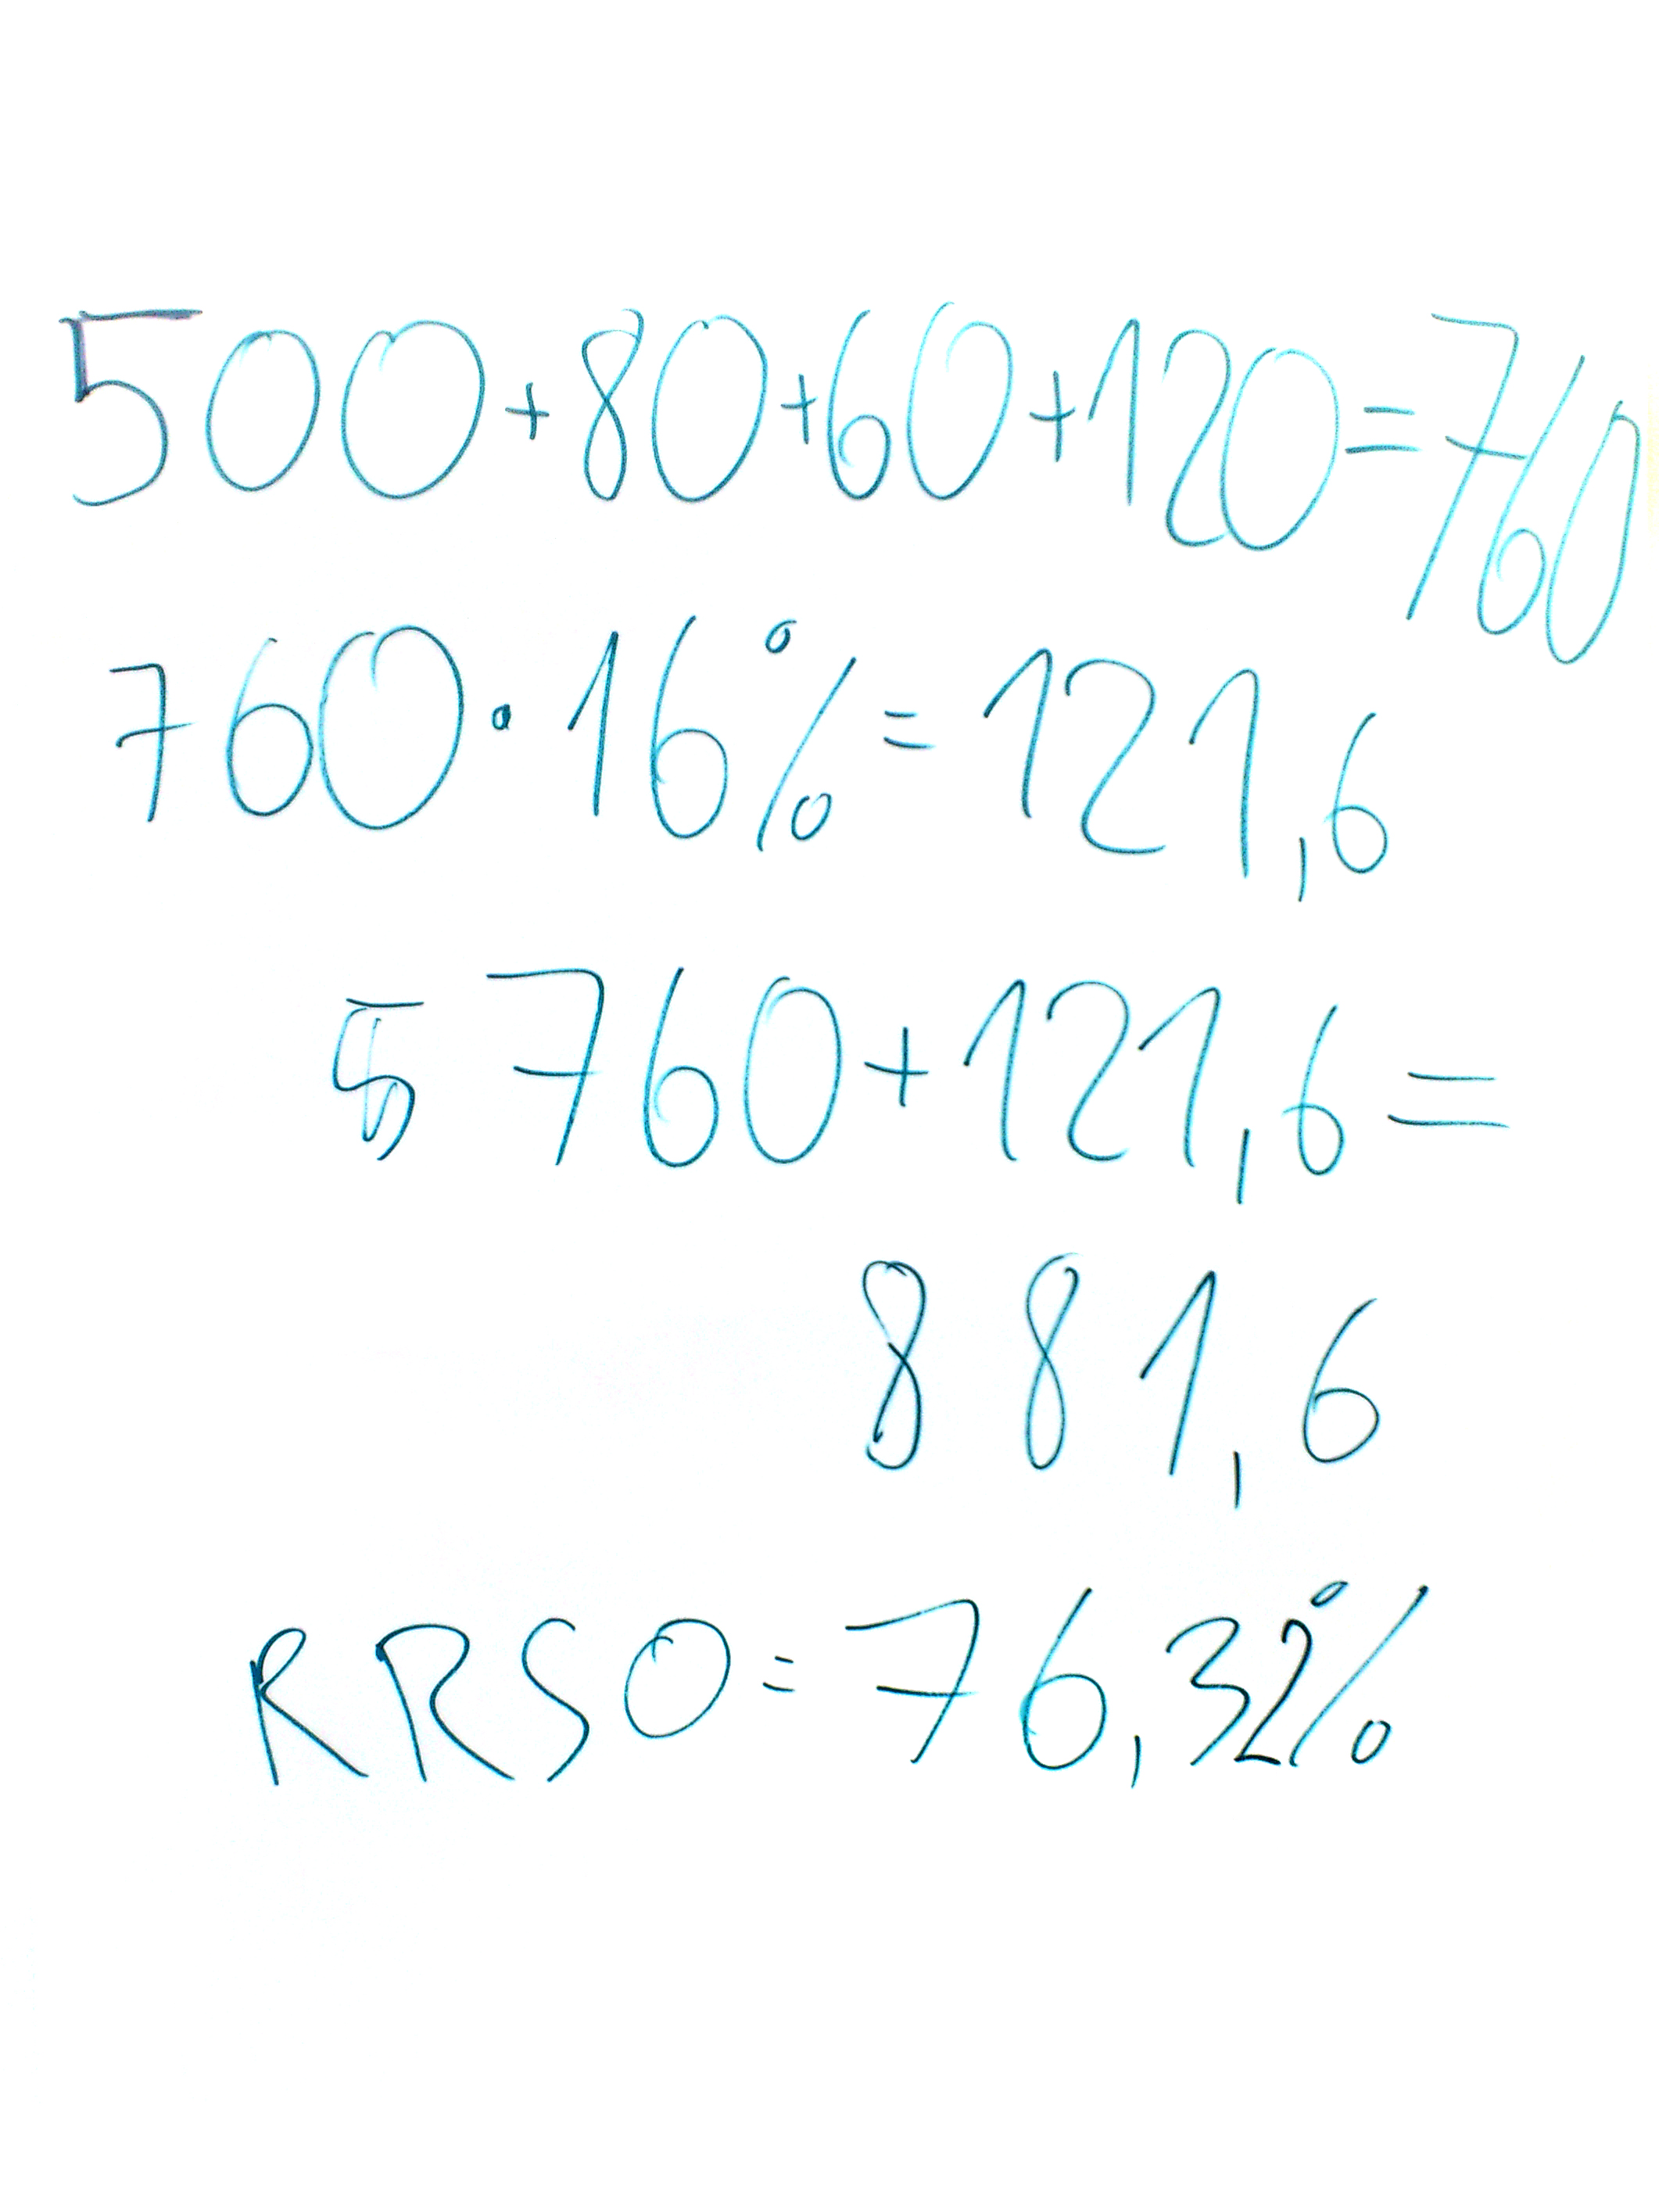 500+80+60+120=760
760·16%=121,6
760+121,6=
881,6
RRSO=76,32%